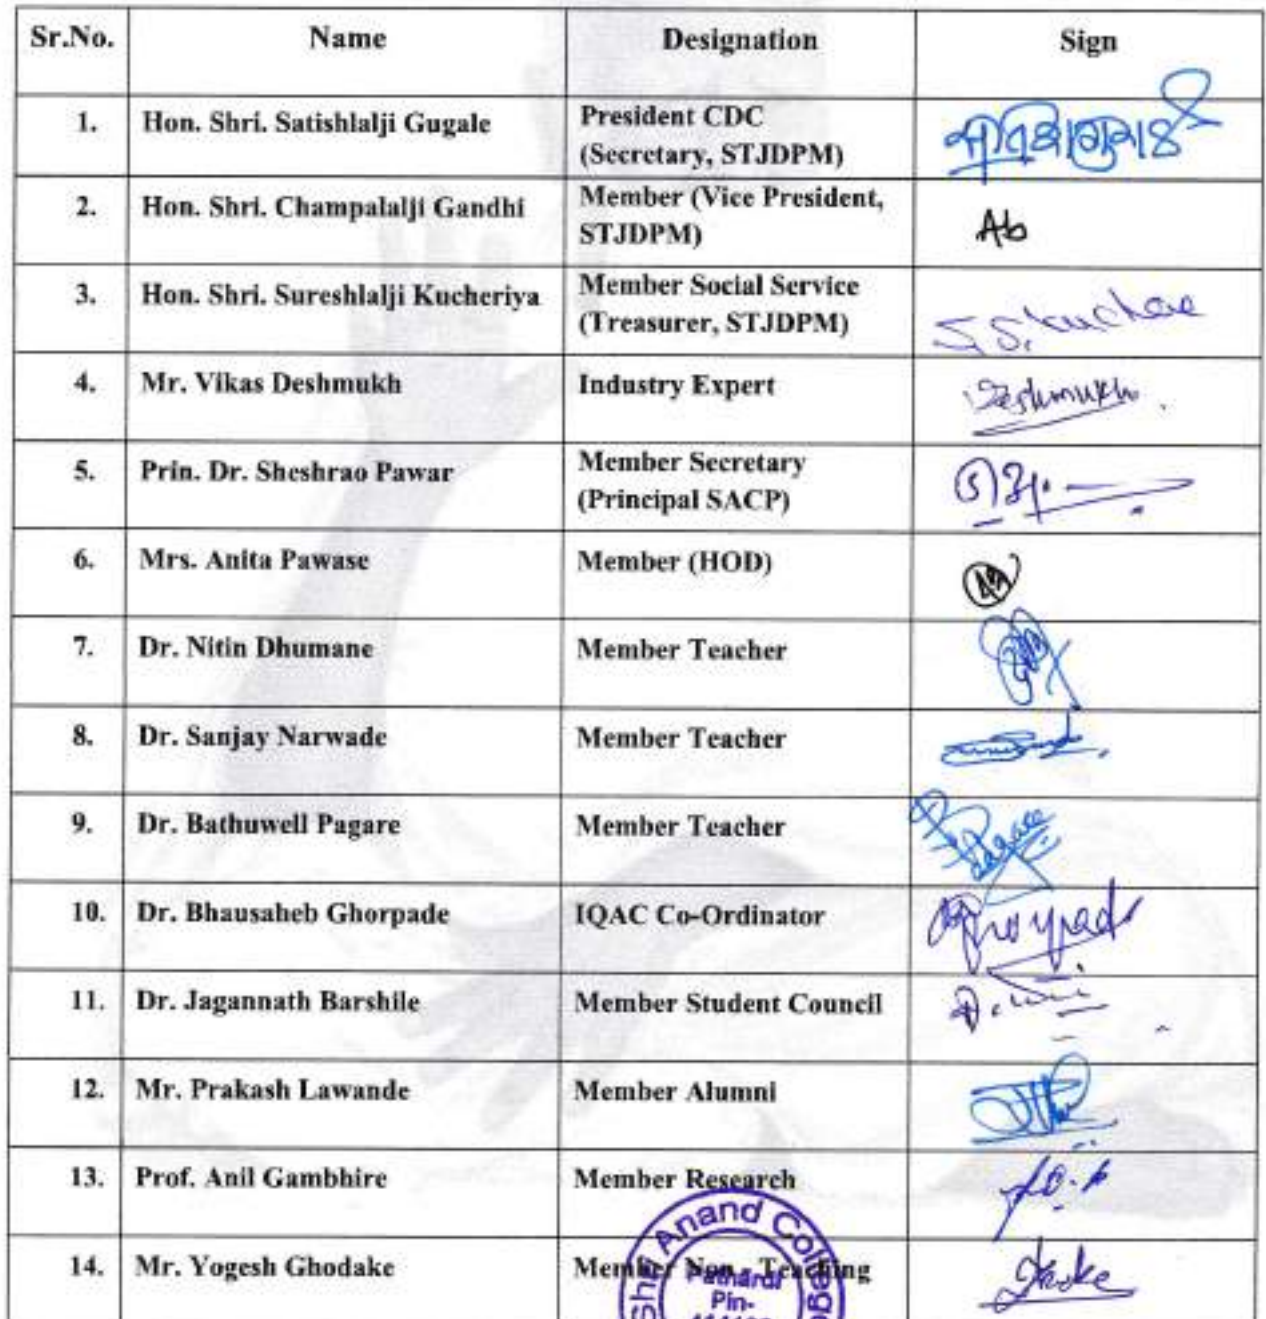 Sr.No. Name Designation Sign
1. Hon. Shri. Satishlalji Gugale President CDC
(Secretary, STJDPM)
2. Hon. Shri. Champalalji Gandhi Member (Vice President,
STJDPM) Ab
3. Hon. Shri. Sureshlalji Kucheriya Member Social Service
(Treasurer, STJDPM)
4. Mr. Vikas Deshmukh Industry Expert Deshmukh
5. Prin. Dr. Sheshrao Pawar Member Secretary
(Principal SACP)
6. Mrs. Anita Pawase Member (HOD)
7. Dr. Nitin Dhumane Member Teacher
8. Dr. Sanjay Narwade Member Teacher
9. Dr. Bathuwell Pagare Member Teacher Pagare
10. Dr. Bhausaheb Ghorpade IQAC Co-Ordinator
11. Dr. Jagannath Barshile Member Student Council
12. Mr. Prakash Lawande Member Alumni
13. Prof. Anil Gambhire Member Research
14. Mr. Yogesh Ghodake Member Non - Teaching
Anand College
Pathardi
Pin-